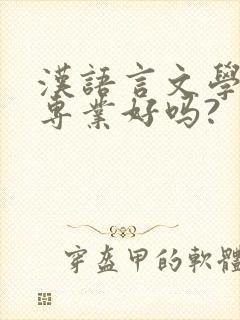 漢語言文學
專業好吗?
穿盔甲的軟體